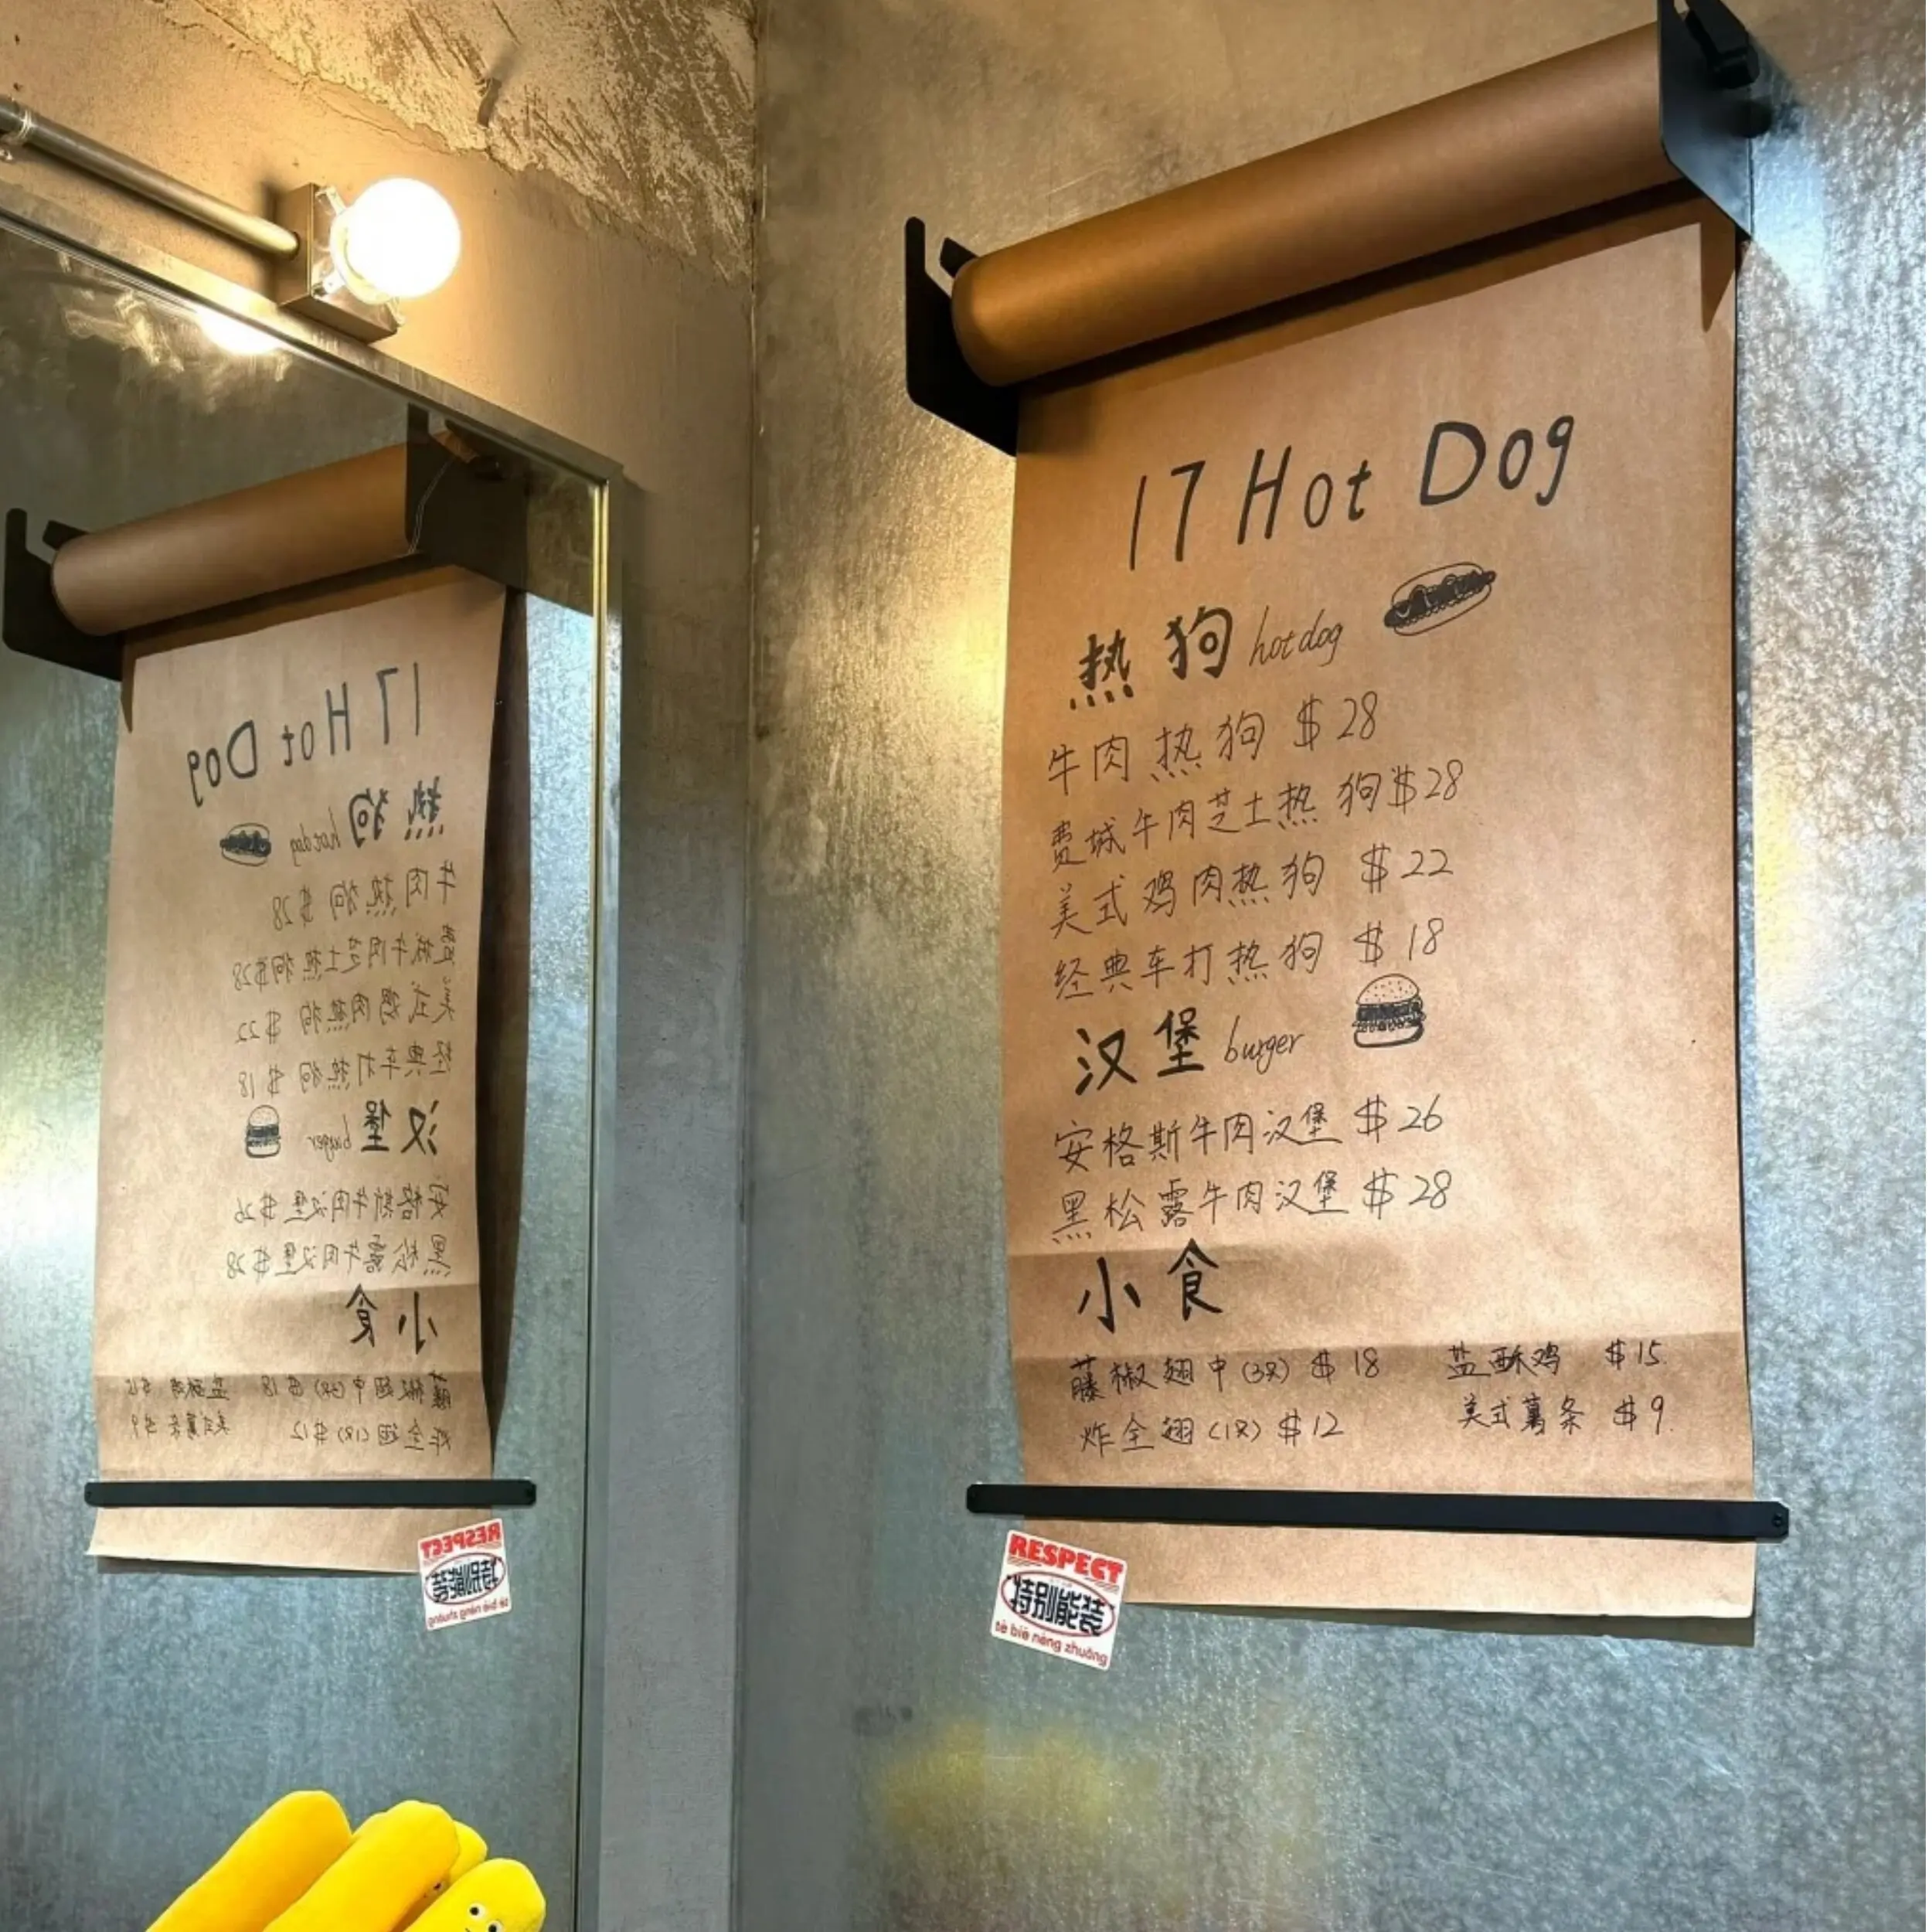 17 Hot Dog
热狗 hot dog
牛肉热狗 $28
费城牛肉芝士热狗 $28
美式鸡肉热狗 $22
经典车打热狗 $18
汉堡 burger
安格斯牛肉汉堡 $26
黑松露牛肉汉堡 $28
小食
藤椒翅中(3只) $18 盐酥鸡 $15
炸全翅(1只) $12 美式薯条 $9
RESPECT
特别能装
tè bié néng zhuāng